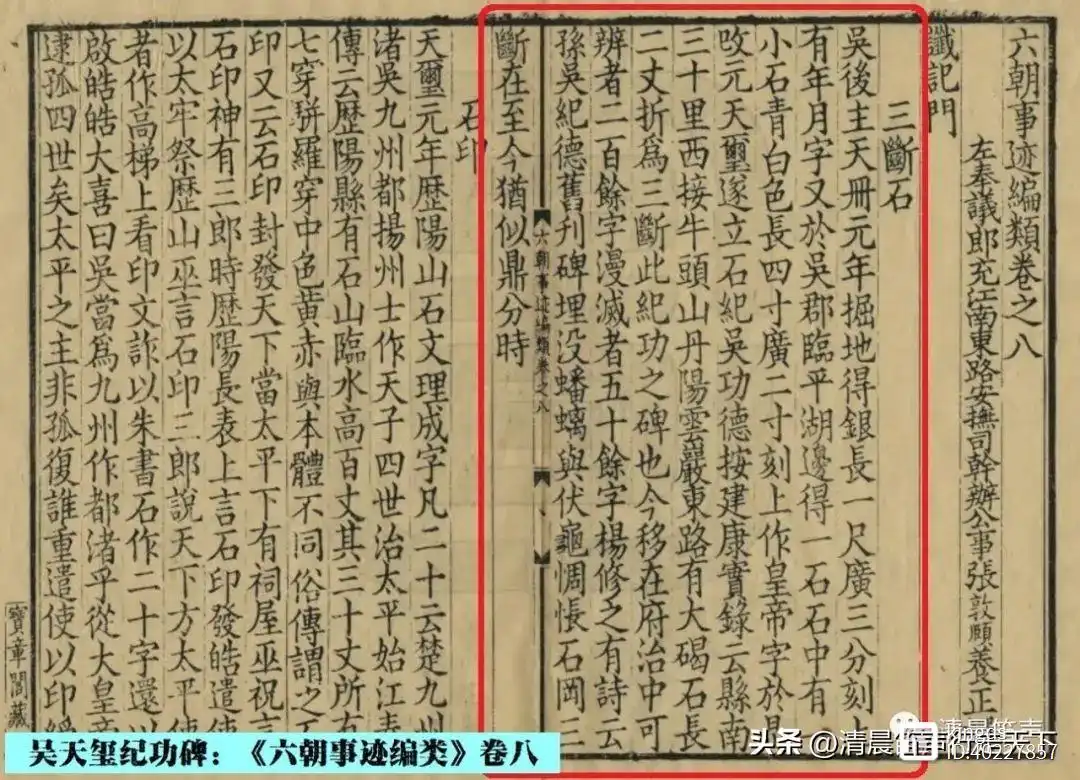 六朝事迹編類卷之八
左奉議郎充江南東路安撫司幹辦公事張敦頤養正
讖記門
三斷石
吳後主天冊元年掘地得銀長一尺廣三分刻上
有年月字又於吳郡臨平湖邊得一石石中有
小石青白色長四寸廣二寸刻上作皇帝字於是
改元天璽遂立石紀吳功德按建康實錄云縣南
三十里西接牛頭山丹陽雲巖東路有大碣石長
二丈折爲三斷此紀功之碑也今移在府治中可
辨者二百餘字漫滅者五十餘字楊修之有詩云
孫吳紀德舊刋碑埋没蟠螭與伏龜惆悵石岡三
斷在至今猶似鼎分時
六朝事迹編類卷之八
石印
天璽元年歷陽山石文理成字凡二十云楚九州
渚吳九州都揚州士作天子四世治太平始江表
傳云歷陽縣有石山臨水高百丈其三十丈所有
七穿駢羅穿中色黃赤與本體不同俗傳謂之石
印又云石印封發天下當太平下有祠屋巫祝言
石印神有三郎時歷陽長表上言石印發皓遣使
以太牢祭歷山巫言石印三郎說天下方太平使
者作高梯上看印文詐以朱書石作二十字還以
啟皓皓大喜曰吳當爲九州作都渚乎從大皇帝
逮孤四世矣太平之主非孤復誰重遣使以印綬
寶章閣藏
吴天玺纪功碑：《六朝事迹编类》卷八
头条 @清晨笛声
清晨笛声
ID:40227857